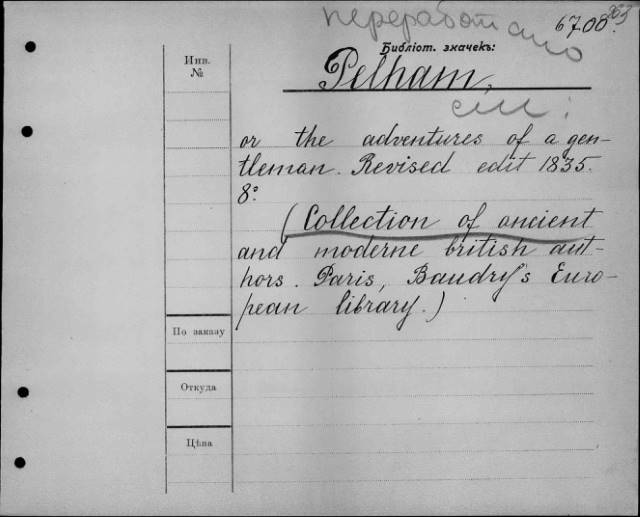 переработано
6708.
363
Библіот. значекъ:
Инв.
№
Pelham,
см:
or the adventures of a gen-
tleman. Revised edit 1835.
8º
(Collection of ancient
and moderne british aut-
hors. Paris, Baudry's Euro-
pean library.)
По заказу
Откуда
Цѣна